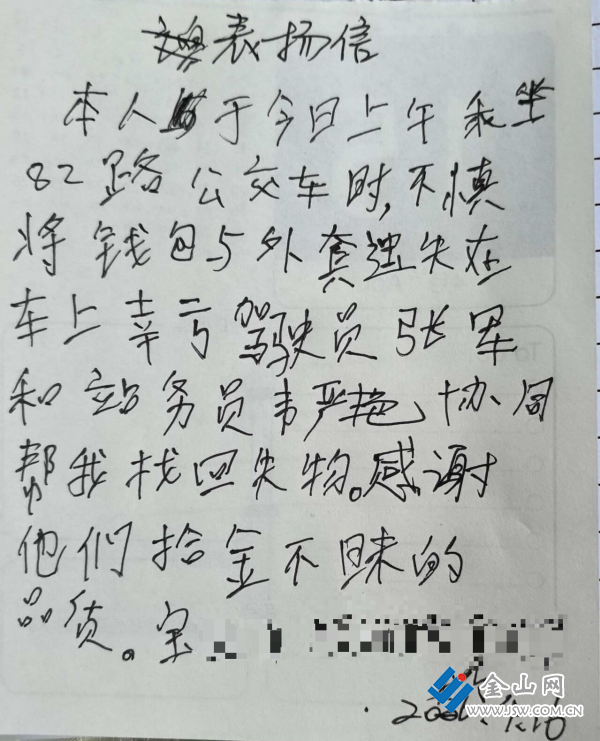 表扬信
本人于今日上午乘坐
82路公交车时,不慎
将钱包与外套遗失在
车上幸亏驾驶员张军
和站务员韦严艳协同
帮我找回失物。感谢
他们拾金不昧的
品质。
金山网
WWW.JSW.COM.CN